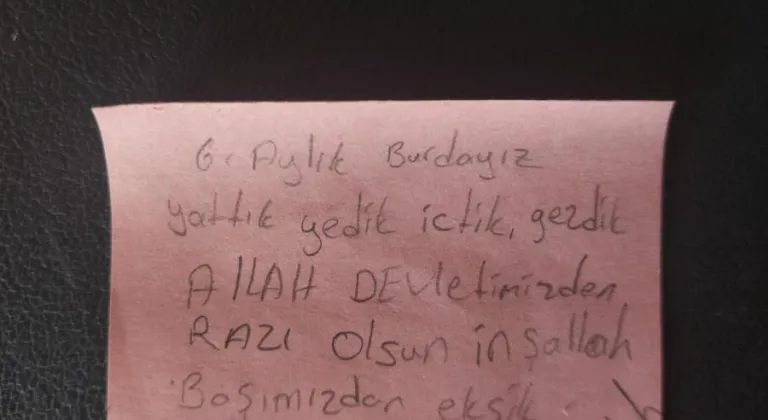 6. Aylık Burdayız
yattık yedik içtik, gezdik
AllAH DEVletimizden
RAZI Olsun inşallah
Başımızdan eksik